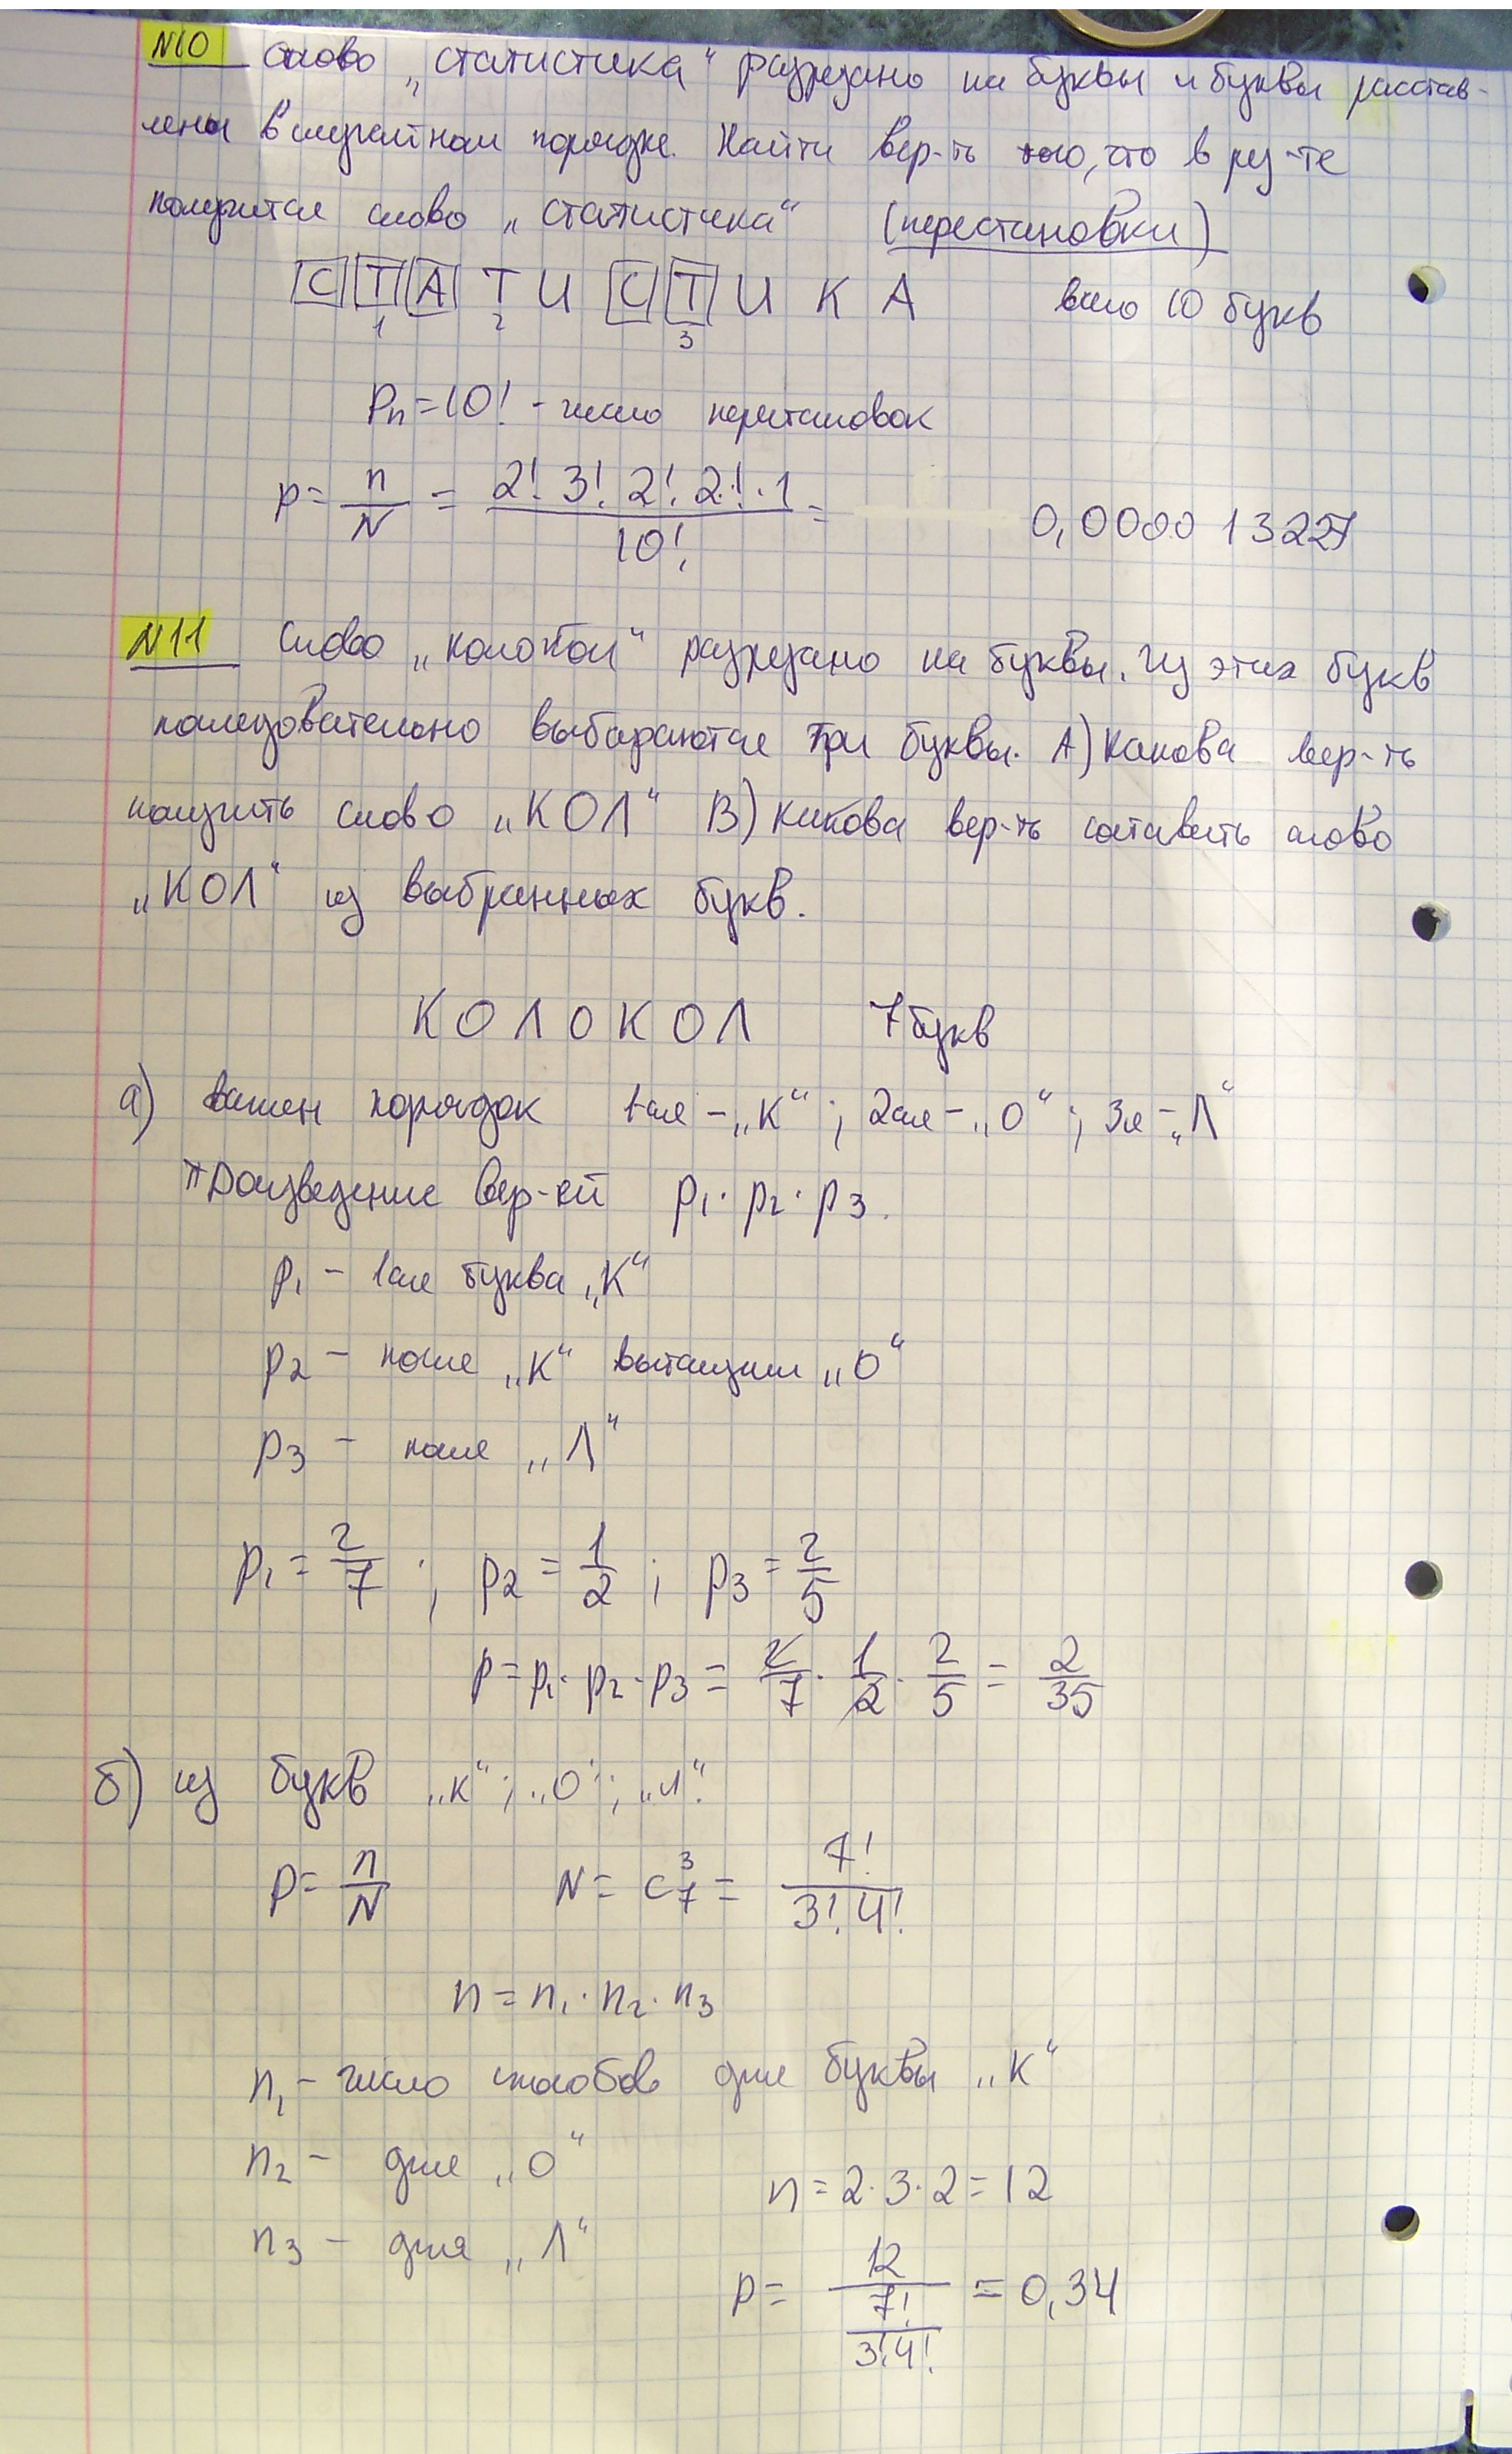 N10 Слово „статистика“ разрезано на буквы и буквы расстав-
лены в случайном порядке. Найти вер-ть того, что в рез-те
получится слово „статистика“ (перестановки)
С Т А Т И С Т И К А всего 10 букв
1 2 3
Pn = 10! - число перестановок
p = n/N = 2! 3! 2! 2! · 1 / 10! = 0,000013227
N11 Слово „колокол“ разрезано на буквы. Из этих букв
последовательно выбираются три буквы. А) Какова вер-ть
получить слово „КОЛ“ В) Какова вер-ть составить слово
„КОЛ“ из выбранных букв.
К О Л О К О Л 7 букв
а) важен порядок 1-ая – „К“; 2ая – „О“; 3я – „Л“
Произведение вер-ей p1 · p2 · p3.
p1 – 1ая буква „К“
p2 – после „К“ вытащим „О“
p3 – после „Л“
p1 = 2/7 ; p2 = 1/2 ; p3 = 2/5
p = p1 · p2 · p3 = 2/7 · 1/2 · 2/5 = 2/35
б) из букв „к“; „О“; „л“.
p = n/N N = C₇³ = 7!/3!4!
n = n1 · n2 · n3
n1 – число способов для буквы „К“
n2 – для „О“
n = 2·3·2 = 12
n3 – для „Л“
p = 12 / (7!/3!4!) = 0,34